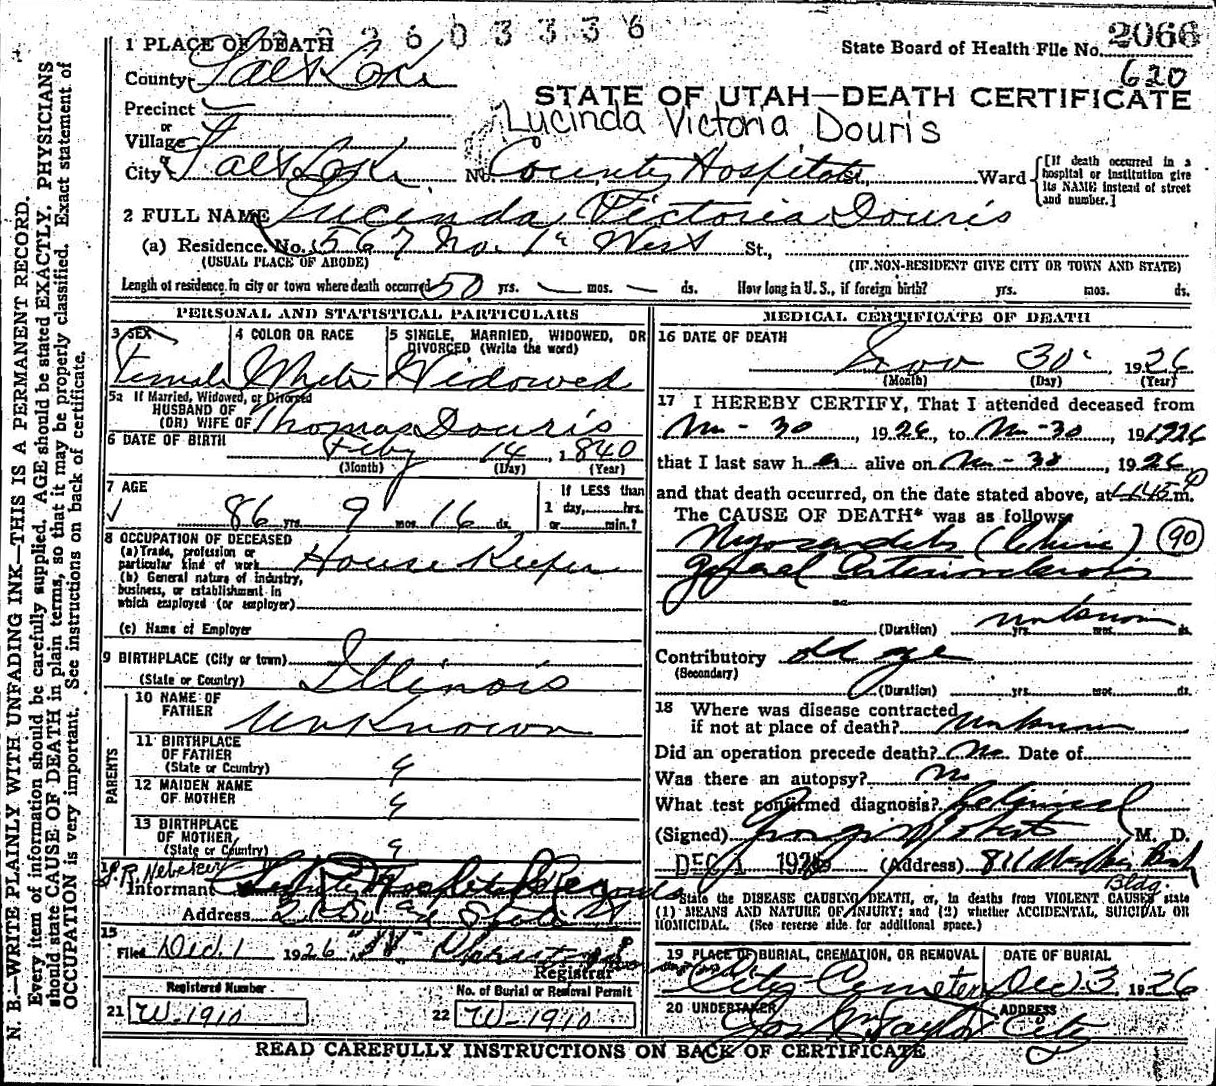 2603336
State Board of Health File No. 2066
620
STATE OF UTAH—DEATH CERTIFICATE
Lucinda Victoria Douris
1 PLACE OF DEATH
County Salt Lake
Precinct
or
Village
or
City Salt Lake No. County Hospital St., Ward
[If death occurred in a hospital or institution give its NAME instead of street and number.]
2 FULL NAME Lucinda Victoria Douris
(a) Residence. No. 567 No. 1st West St.,
(USUAL PLACE OF ABODE) (IF NON-RESIDENT GIVE CITY OR TOWN AND STATE)
Length of residence in city or town where death occurred 50 yrs. — mos. — ds. How long in U.S., if foreign birth? yrs. mos. ds.
PERSONAL AND STATISTICAL PARTICULARS
3 SEX Female
4 COLOR OR RACE White
5 SINGLE, MARRIED, WIDOWED, OR DIVORCED (Write the word) Widowed
5a If Married, Widowed, or Divorced
HUSBAND OF
(OR) WIFE OF Thomas Douris
6 DATE OF BIRTH Feby 14, 1840
(Month) (Day) (Year)
7 AGE 86 yrs. 9 mos. 16 ds.
If LESS than
1 day, hrs.
or min.?
8 OCCUPATION OF DECEASED
(a) Trade, profession or
particular kind of work House Keeper
(b) General nature of industry,
business, or establishment in
which employed (or employer)
(c) Name of Employer
9 BIRTHPLACE (City or town)
(State or Country) Illinois
PARENTS
10 NAME OF
FATHER Unknown
11 BIRTHPLACE
OF FATHER
(State or Country)
12 MAIDEN NAME
OF MOTHER
13 BIRTHPLACE
OF MOTHER
(State or Country)
14
Informant Hospital Records
Address State St
15
Filed Dec. 1 1926
Registrar
Registered Number
21 W-1910
No. of Burial or Removal Permit
22 W-1910
MEDICAL CERTIFICATE OF DEATH
16 DATE OF DEATH
Nov 30, 1926
(Month) (Day) (Year)
17 I HEREBY CERTIFY, That I attended deceased from
Nov - 30, 1926, to Nov - 30, 191926
that I last saw her alive on Nov - 30, 1926
and that death occurred, on the date stated above, at m.
The CAUSE OF DEATH* was as follows:
Myocarditis (Chronic) 90
General Arteriosclerosis
(Duration) unknown yrs. mos. ds.
Contributory old age
(Secondary)
(Duration) yrs. mos. ds.
18 Where was disease contracted
if not at place of death? unknown
Did an operation precede death? No Date of
Was there an autopsy? No
What test confirmed diagnosis?
(Signed) M. D.
DEC 1 1926 (Address) Bldg.
*State the DISEASE CAUSING DEATH, or, in deaths from VIOLENT CAUSES state
(1) MEANS AND NATURE OF INJURY; and (2) whether ACCIDENTAL, SUICIDAL OR
HOMICIDAL. (See reverse side for additional space.)
19 PLACE OF BURIAL, CREMATION, OR REMOVAL DATE OF BURIAL
City Cemetery Dec 3 1926
20 UNDERTAKER ADDRESS
Taylor City
READ CAREFULLY INSTRUCTIONS ON BACK OF CERTIFICATE
N. B.—WRITE PLAINLY WITH UNFADING INK—THIS IS A PERMANENT RECORD.
Every item of information should be carefully supplied. AGE should be stated EXACTLY. PHYSICIANS
should state CAUSE OF DEATH in plain terms, so that it may be properly classified. Exact statement of
OCCUPATION is very important. See instructions on back of certificate.